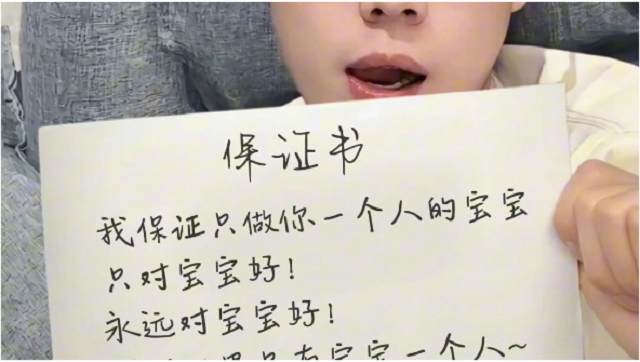 保证书
我保证只做你一个人的宝宝
只对宝宝好！
永远对宝宝好！
宝宝一个人~